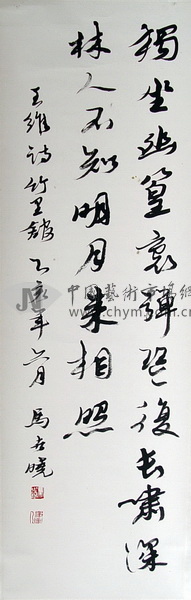 獨坐幽篁裏彈琴復長嘯深
林人不知明月來相照
王維詩竹里館 乙亥年六月 馬世曉
中國藝術市場網